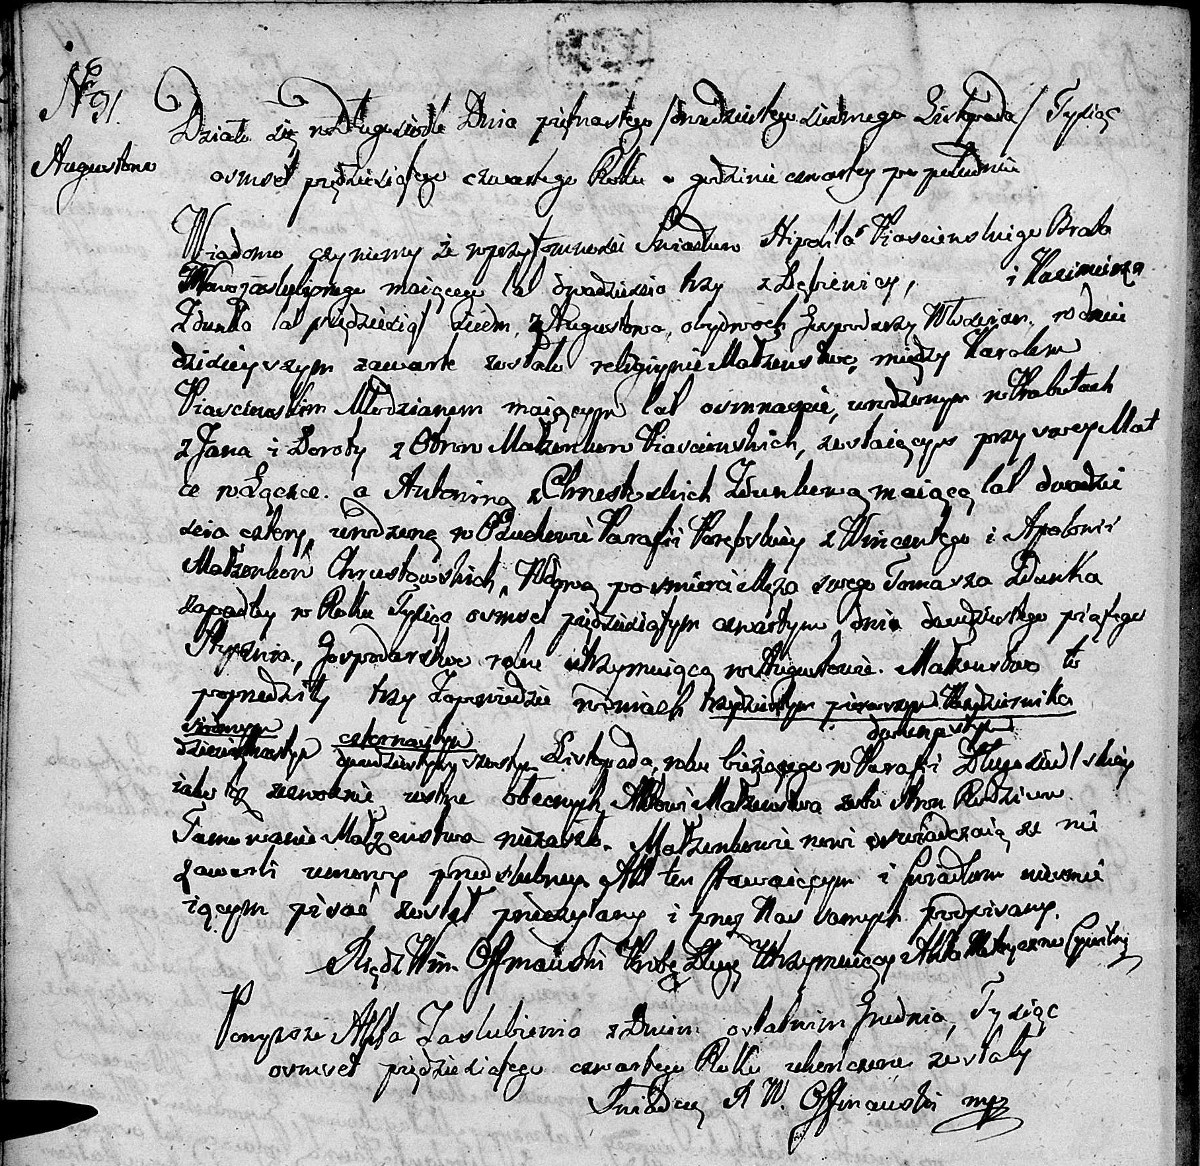 № 91.
Augustowo
Działo się w Długosiodle Dnia piętnastego /dwudziestego siedmego Listopada/ Tysiąc
osmset pięćdziesiątego czwartego Roku o godzinie czwartey po południu
Wiadomo czyniemy że w przytomności Swiadków Hipolita Kiascienskiego Brata
Nowozaślubionego maiącego lat dwadzieścia trzy z Dębienicy, i Kazimierza
Zdunka lat pięćdziesiąt siedm, z Augustowa, obydwóch Gospodarzy Włościan, w dniu
dzisieyszym zawarte zostało religiyne Małżeństwo, między Karolem
Młodzianem maiącym lat osmnaście, urodzonym w
z Jana i Doroty z Małżonków zostaiącym przy swey Mat
ce w Łączce. a Antoniną z Chrostowskich Zdunkową maiącą lat dwadzie
scia cztery, urodzoną w Parafii Porębskiey z Wincentego i Apolonii
Małżonków Chrostowskich, Wdową po smierci Męża swego Tomasza Zdunka
zapadłey w Roku Tysiąc osmset pięćdziesiątym czwartym dnia dwudziestego piątego
Stycznia, Gospodarstwo rolne utrzymuiącą w Augustowie. Małżeństwo to
poprzedziły trzy Zapowiedzie w dniach trzydziestym pierwszym Października
siodmym czternastym
dwunastym
dziewiętnastym dwudziestym szostym Listopada, roku bieżącego w Parafii Długosiedlskiey
iako też zezwolenie ustne obecnych Aktowi Małżeństwa ze stron Rodziców
Tamowanie Małżeństwa nie zaszło. Małżonkowie nowi oswiadczaią że nie
zawarli umowy przedslubney. Akt ten stawaiącym i swiadkom nieumie
iącym pisać został przeczytany i przez Nas samych podpisany.
Xiądz Win. Offmański Prob. Dług. Utrzymuiący Akta Stanu Cywilnego
Powyższe Akta Zaślubienia z Dniem ostatnim Grudnia, Tysiąc
osmset pięćdziesiątego czwartego Roku ukończone zostały
Swiadczy X W. Offmański mpp